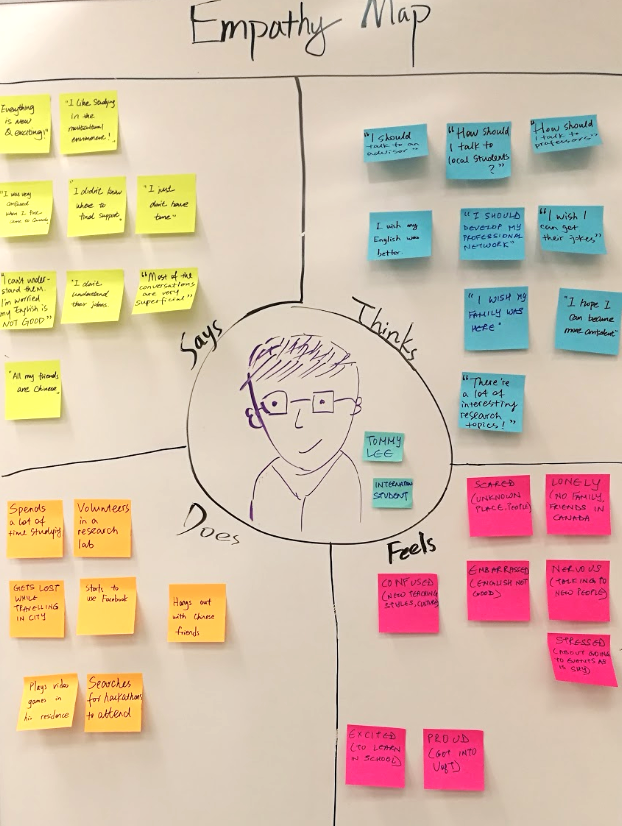 Empathy Map
Everything
is New
& exciting!"
"I like studying
in the
multicultural
environment!"
"I was very
confused
when I first
came to Canada
I didn't know
where to
find support.
"I just
don't have
time"
"I can't under-
stand them.
I'm worried
my English is
NOT GOOD"
"I don't
understand
their jokes.
"Most of the
conversations
are very
superficial"
"All my friends
are Chinese.
Says
"I should
talk to an
advisor"
"How should
I talk to
local students
?"
"How should
I talk to
professors"
I wish my
English was
better
"I SHOULD
DEVELOP MY
PROFESSIONAL
NETWORK"
"I wish I
can get
their jokes"
"I WISH MY
FAMILY WAS
HERE"
"I hope I
can become
more confident"
"There're
a lot of
interesting
research
topics!"
Thinks
TOMMY
LEE
INTERNATION
STUDENT
Does
Spends
a lot of
time studying
Volunteers
in a
research
lab
GETS LOST
WHILE
TRAVELLING
IN CITY
Starts to
use Facebook
Hangs out
with Chinese
friends
Plays video
games in
his residence
Searches
for hackathons
to attend
Feels
SCARED
(UNKNOWN
PLACE, PEOPLE)
LONELY
(NO FAMILY
FRIENDS IN
CANADA
CONFUSED
(NEW TEACHING
STYLES, CULTURE)
EMBARRASSED
(ENGLISH NOT
GOOD)
NERVOUS
(TALKING TO
NEW PEOPLE)
STRESSED
(ABOUT GOING
TO EVENTS AS
IS SHY)
EXCITED
(TO LEARN
IN SCHOOL)
PROUD
(GOT INTO
UofT)